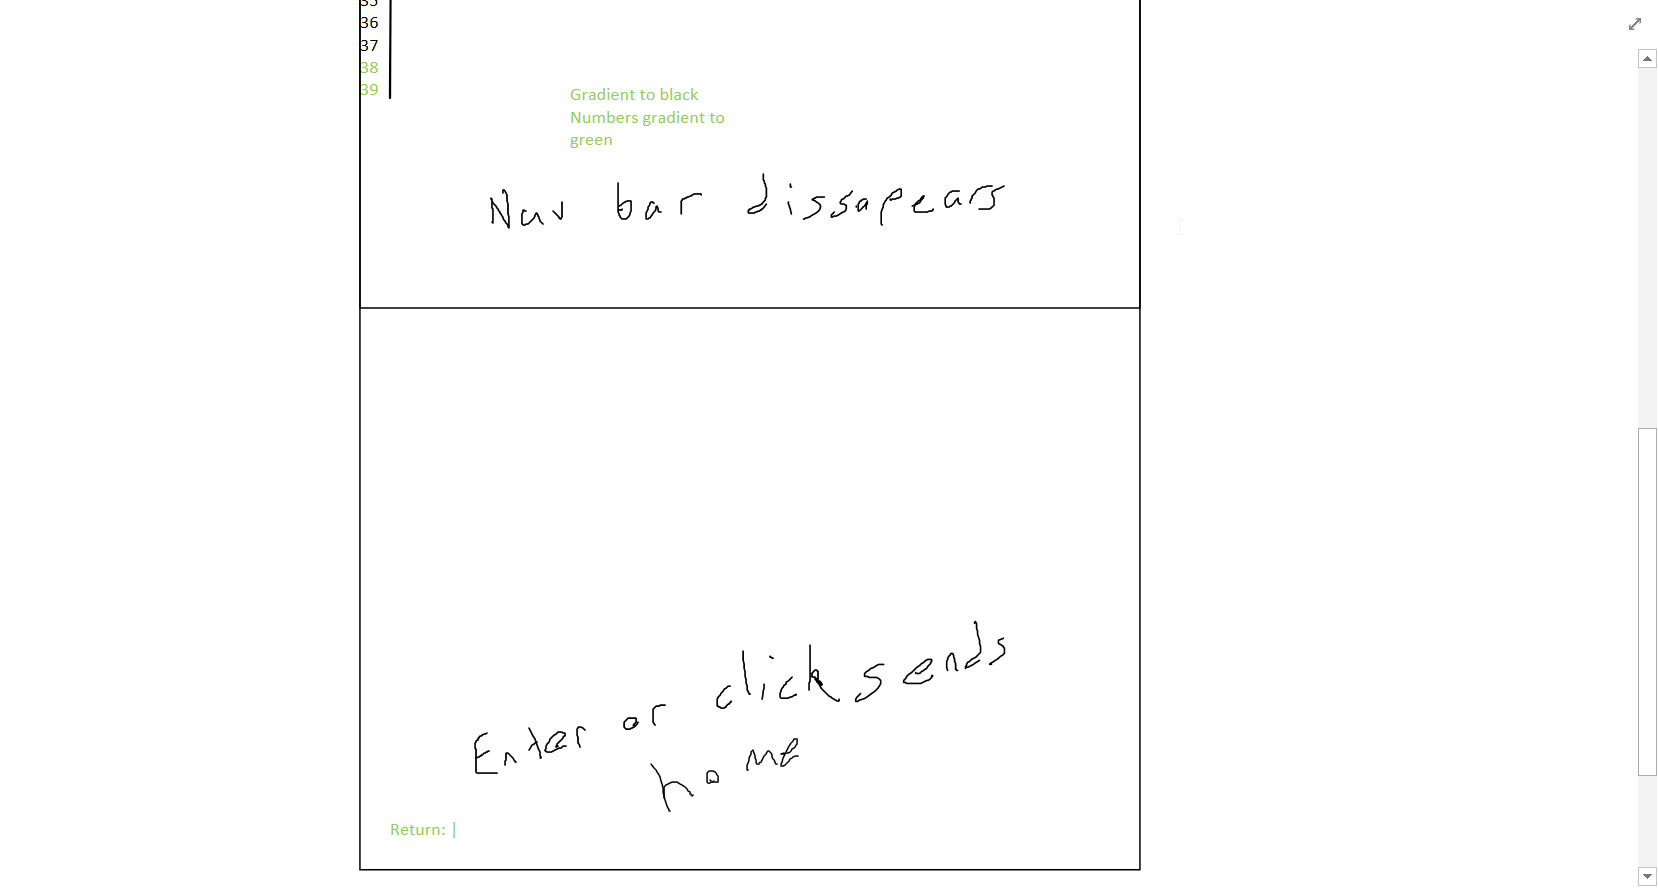 35
36
37
38
39
Gradient to black
Numbers gradient to
green
Nav bar dissapears
Enter or click sends
home
Return: |